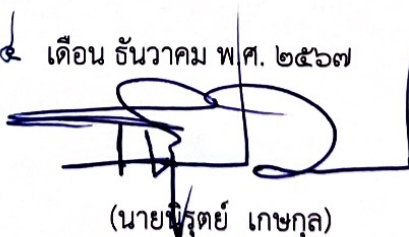 ๔ เดือน ธันวาคม พ.ศ. ๒๕๖๗
(นายพิรุตย์ เกษกุล)